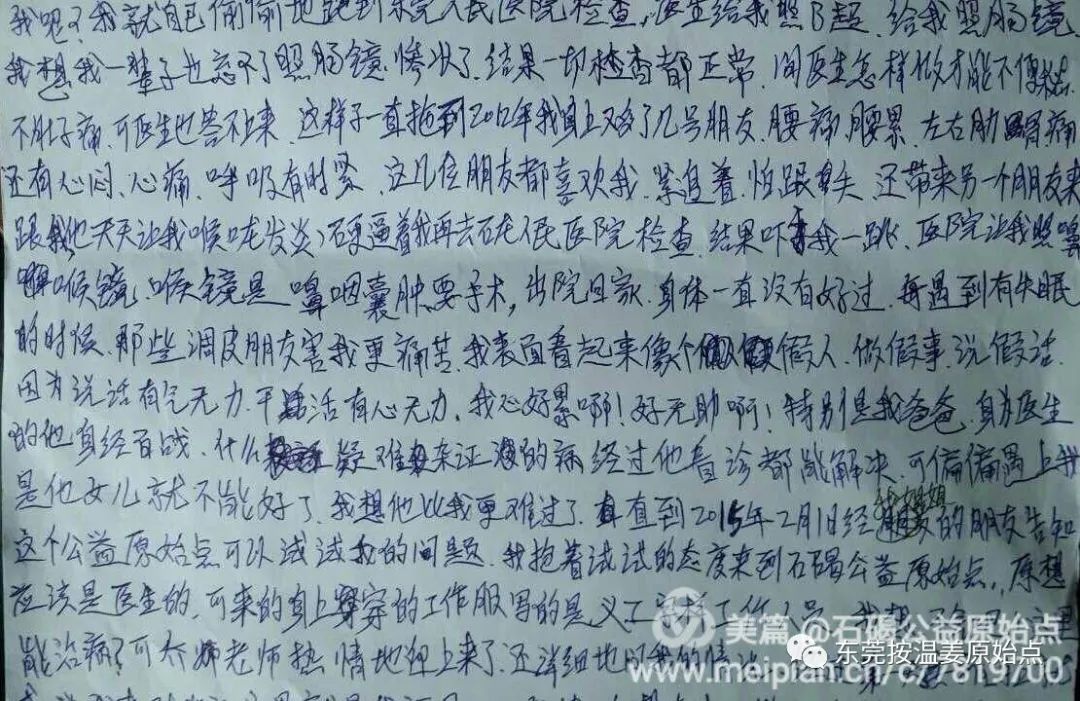 我呢?我就自己偷偷地跑到东莞人民医院检查,医生给我照B超.给我照肠镜,
我想我一辈子也忘不了照肠镜.惨状了.结果一切检查都正常.问医生怎样做才能不便秘.
不肚子痛.可医生也答不上来.这样子一直拖到2012年我身上又多了几号朋友.腰痛腰累.左右肋胃痛
还有心闷、心痛.呼吸有时紧.这几位朋友都喜欢我.紧追着.怕跟失.还带来另一个朋友来
跟我他天天让我喉咙发炎,更逼着我再去石龙人民医院检查.结果吓我一跳.医院让我照鼻
喉镜.喉镜是鼻咽囊肿要手术,出院回家.身体一直没有好过.每遇到有失眠
的时候.那些调皮朋友害我更痛苦.我表面看起来像个假人.做假事.说假话.
因为说话有气无力.干活有心无力.我心好累啊!好无助啊!特别是我爸爸.身为医生
的他身经百战.什么疑难杂证的病经过他看诊都能解决.可偏偏遇上我
是他女儿就不能好了.我想他比我更难过了.直到2015年2月1日经我姐姐的朋友告知
这个公益原始点可以试试我的问题.我抱着试试的态度来到石碣公益原始点.原想
应该是医生的.可来的身上穿的工作服写的是义工
能治病?可乔老师热情地迎上来了.还详细地问我的情
美篇 @石碣公益原始点
www.meipian.cn/c/7819700
东莞按温姜原始点